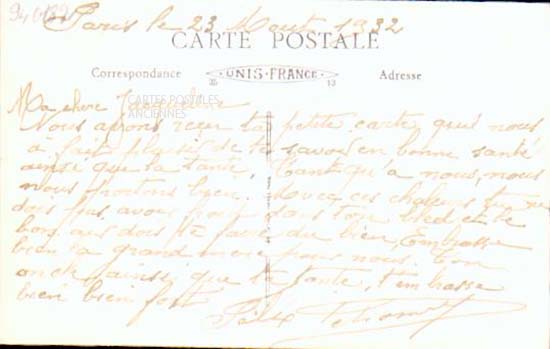 94032
Paris le 23 Aout 1932
CARTE POSTALE
Correspondance UNIS-FRANCE Adresse
Ma chere Jacqueline
CARTES POSTALES
ANCIENNES
Nous avons reçu ta petite carte qui nous
à fait plaisir de te savoir en bonne santé
ainsi que ta tante, tant qu'a nous, nous
nous portons bien. Avec ces chaleurs tu ne
dois pas avoir froid dans ton bled et le
bon air doit te faire du bien, Embrasse
bien ta grand mere pour nous. Ton
oncle ainsi que ta tante, t'embrasse
bien bien fort
Felix